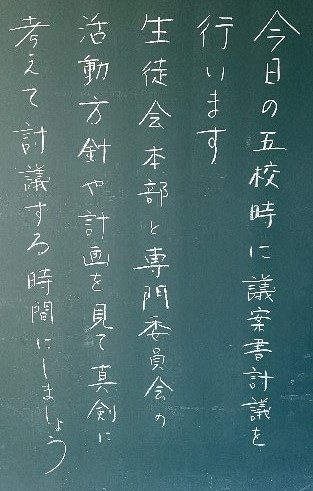 今日の五校時に議案書討議を
行います
生徒会本部と専門委員会の
活動方針や計画を見て真剣に
考えて討議する時間にしましょう